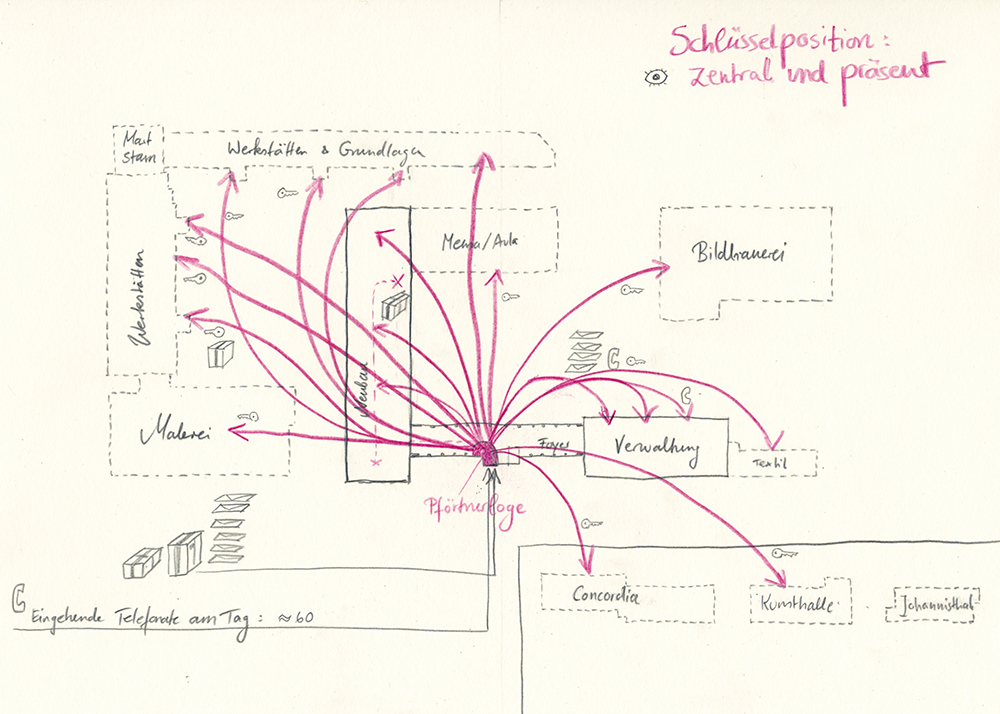 Schlüsselposition:
zentral und präsent
Mart
Stam
Werkstätten & Grundlagen
Mensa/Aula
Bildhauerei
Werkstätten
Neubau
Malerei
Foyer
Verwaltung
Textil
Pförtnerloge
Concordia
Kunsthalle
Johannisthal
Eingehende Telefonate am Tag: ≈ 60